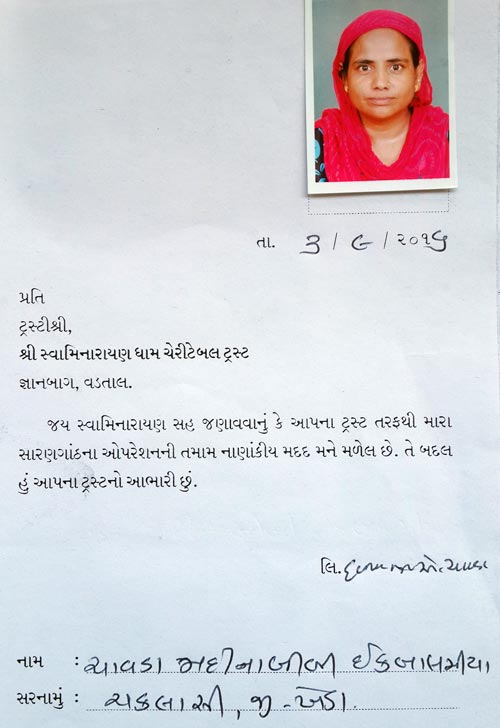 તા. ૩ / ૯ / ૨૦૧૬
પ્રતિ
ટ્રસ્ટીશ્રી,
શ્રી સ્વામિનારાયણ ધામ ચેરીટેબલ ટ્રસ્ટ
જ્ઞાનબાગ, વડતાલ.
જય સ્વામિનારાયણ સહ જણાવવાનું કે આપના ટ્રસ્ટ તરફથી મારા
સારણગાંઠના ઓપરેશનની તમામ નાણાંકીય મદદ મને મળેલ છે. તે બદલ
હું આપના ટ્રસ્ટનો આભારી છું.
લિ.
નામ : ચાવડા મદીનાબીબી ઈકબાલમીયા
સરનામું : ચકલાસી, જી-ખેડા.